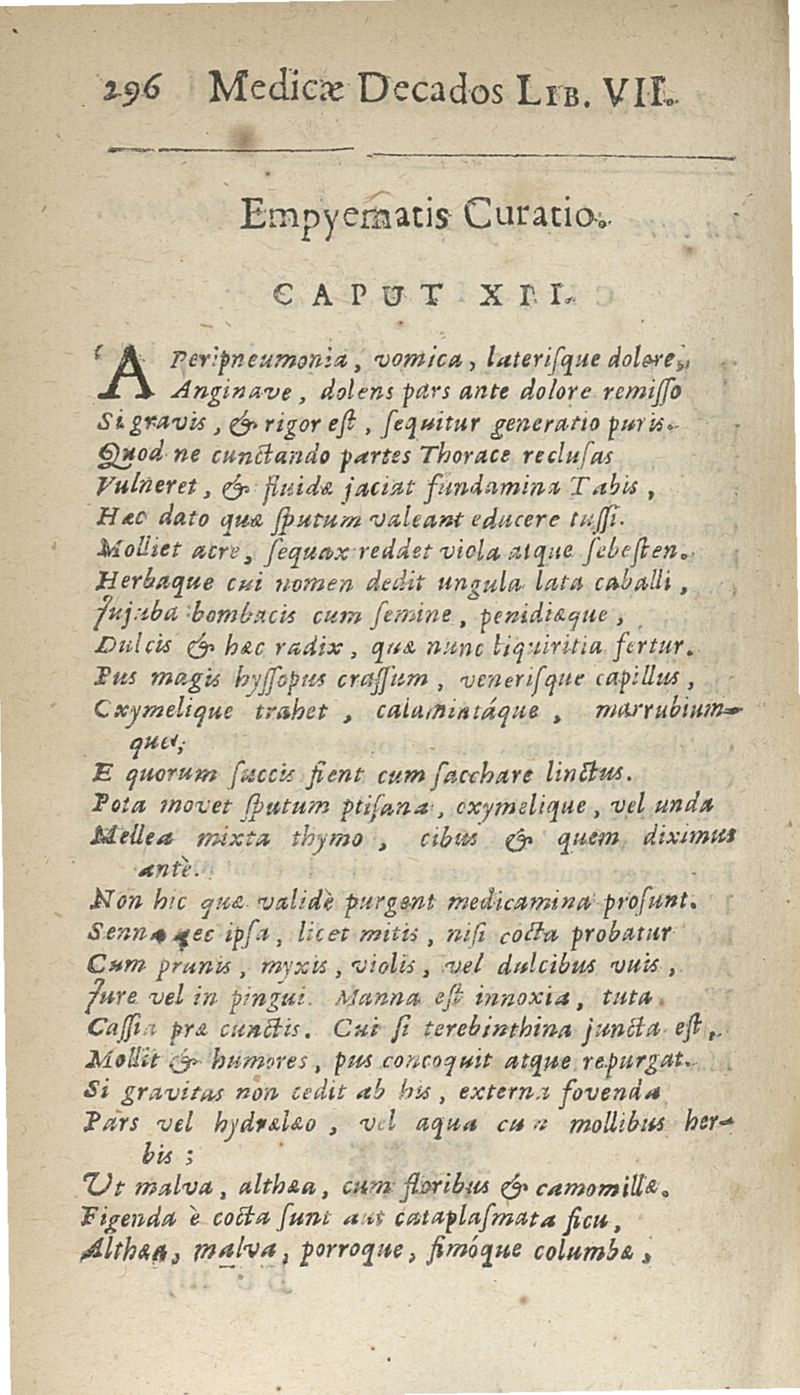 296 Medicæ Decados LIB. VII.
Empyematis Curatio.
CAPUT XII.
A Peripneumonia, vomica, laterisque dolore,
Anginave, dolens pars ante dolore remisso
Si gravis, & rigor est, sequitur generatio puris.
Quod ne cunctando partes Thorace reclusas
Vulneret, & fluidæ jaciat fundamina Tabis,
Hæc dato quæ sputum valeant educere tussi.
Molliet acre, sequax reddet viola atque sebesten.
Herbaque cui nomen dedit ungula lata caballi,
Jujuba bombacis cum semine, penidiæque,
Dulcis & hæc radix, quæ nunc liquiritia fertur.
Pus magis hyssopus crassum, venerisque capillus,
Oxymelique trahet, calamintáque, marrubium-
que;
E quorum succis fient cum sacchare linctus.
Pota movet sputum ptisana, oxymelique, vel unda
Mellea mixta thymo, cibus & quem diximus
antè.
Non hic quæ validè purgent medicamina prosunt.
Senna nec ipsa, licet mitis, nisi cocta probatur
Cum prunis, myxis, violis, vel dulcibus uvis,
Jure vel in pingui. Manna est innoxia, tuta
Cassia præ cunctis. Cui si terebinthina juncta est,
Mollit & humores, pus concoquit atque repurgat.
Si gravitas non cedit ab his, externa fovenda
Pars vel hydrælæo, vel aqua cum mollibus her-
bis;
Ut malva, althæa, cum floribus & camomillæ.
Figenda è cocta sunt aut cataplasmata ficu,
Althæa, malva, porroque, fimóque columbæ,